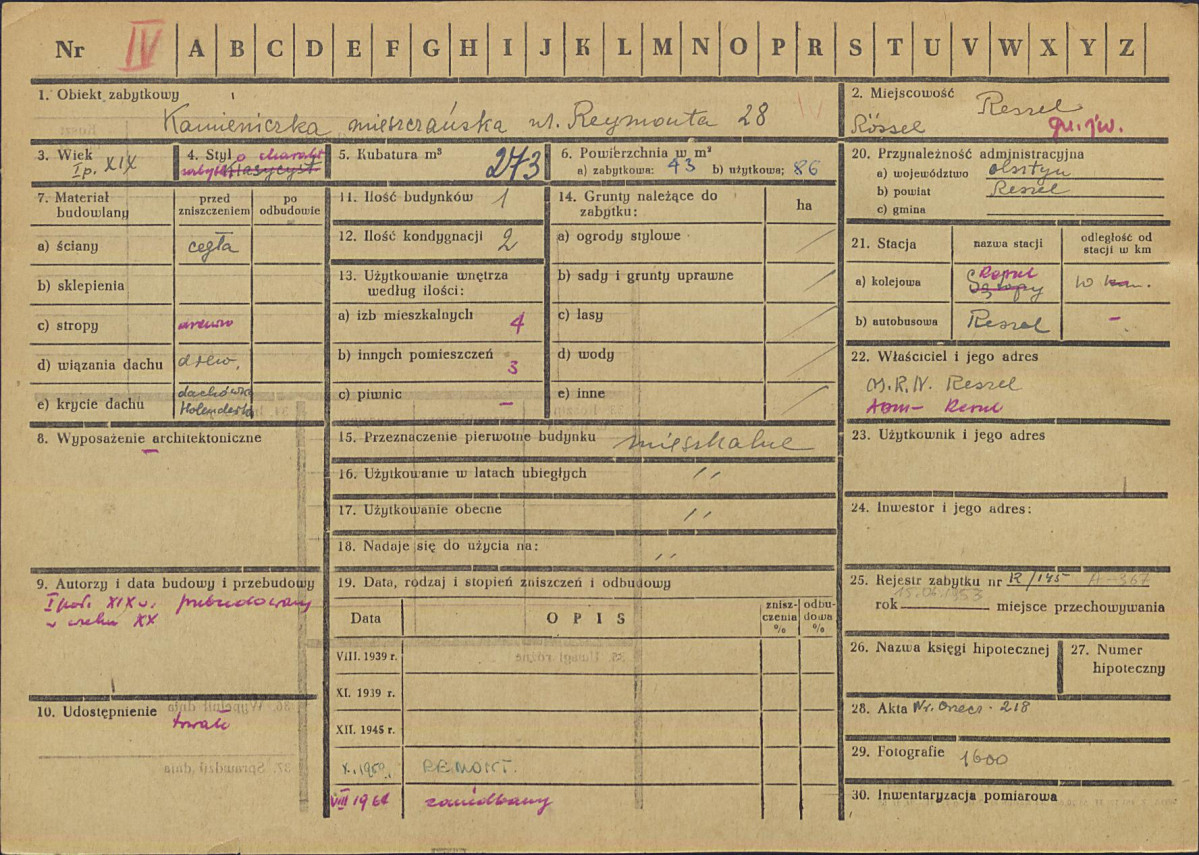 Nr IV A B C D E F G H I J K L M N O P R S T U V W X Y Z
1. Obiekt zabytkowy
Kamieniczka mieszczańska ul. Reymonta 28
2. Miejscowość Reszel
Rössel
gm. jw.
3. Wiek
I p. XIX
4. Styl o charakt.
zabytk. klasycyst.
5. Kubatura m³ 273
6. Powierzchnia w m²
a) zabytkowa: 43 b) użytkowa: 86
7. Materiał budowlany
przed zniszczeniem
po odbudowie
a) ściany cegła
b) sklepienia
c) stropy drewno
d) wiązania dachu drew.
e) krycie dachu dachówka
Holenderka
8. Wyposażenie architektoniczne
–
9. Autorzy i data budowy i przebudowy
I poł. XIX w. przebudowany
w wieku XX
10. Udostępnienie
trwałe
11. Ilość budynków 1
12. Ilość kondygnacji 2
13. Użytkowanie wnętrza
według ilości:
a) izb mieszkalnych 4
b) innych pomieszczeń 3
c) piwnic –
14. Grunty należące do
zabytku:
ha
a) ogrody stylowe
b) sady i grunty uprawne
c) lasy
d) wody
e) inne
15. Przeznaczenie pierwotne budynku mieszkalne
16. Użytkowanie w latach ubiegłych "
17. Użytkowanie obecne "
18. Nadaje się do użycia na: "
19. Data, rodzaj i stopień zniszczeń i odbudowy
Data
OPIS
zniszczenia %
odbudowa %
VIII. 1939 r.
XI. 1939 r.
XII. 1945 r.
X. 1959. REMONT.
VIII 1961 zaniedbany
20. Przynależność administracyjna
a) województwo Olsztyn
b) powiat Reszel
c) gmina
21. Stacja
nazwa stacji
odległość od
stacji w km
a) kolejowa Reszel
Sątopy
10 km.
b) autobusowa Reszel –
22. Właściciel i jego adres
M.R.N. Reszel
ADM – Reszel
23. Użytkownik i jego adres
24. Inwestor i jego adres:
25. Rejestr zabytku nr R/145 A-367
15.06.1953
rok miejsce przechowywania
26. Nazwa księgi hipotecznej
27. Numer
hipoteczny
28. Akta Nr. Orzecz. 218
29. Fotografie 1600
30. Inwentaryzacja pomiarowa